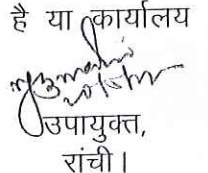 है या कार्यालय
उपायुक्त,
रांची।